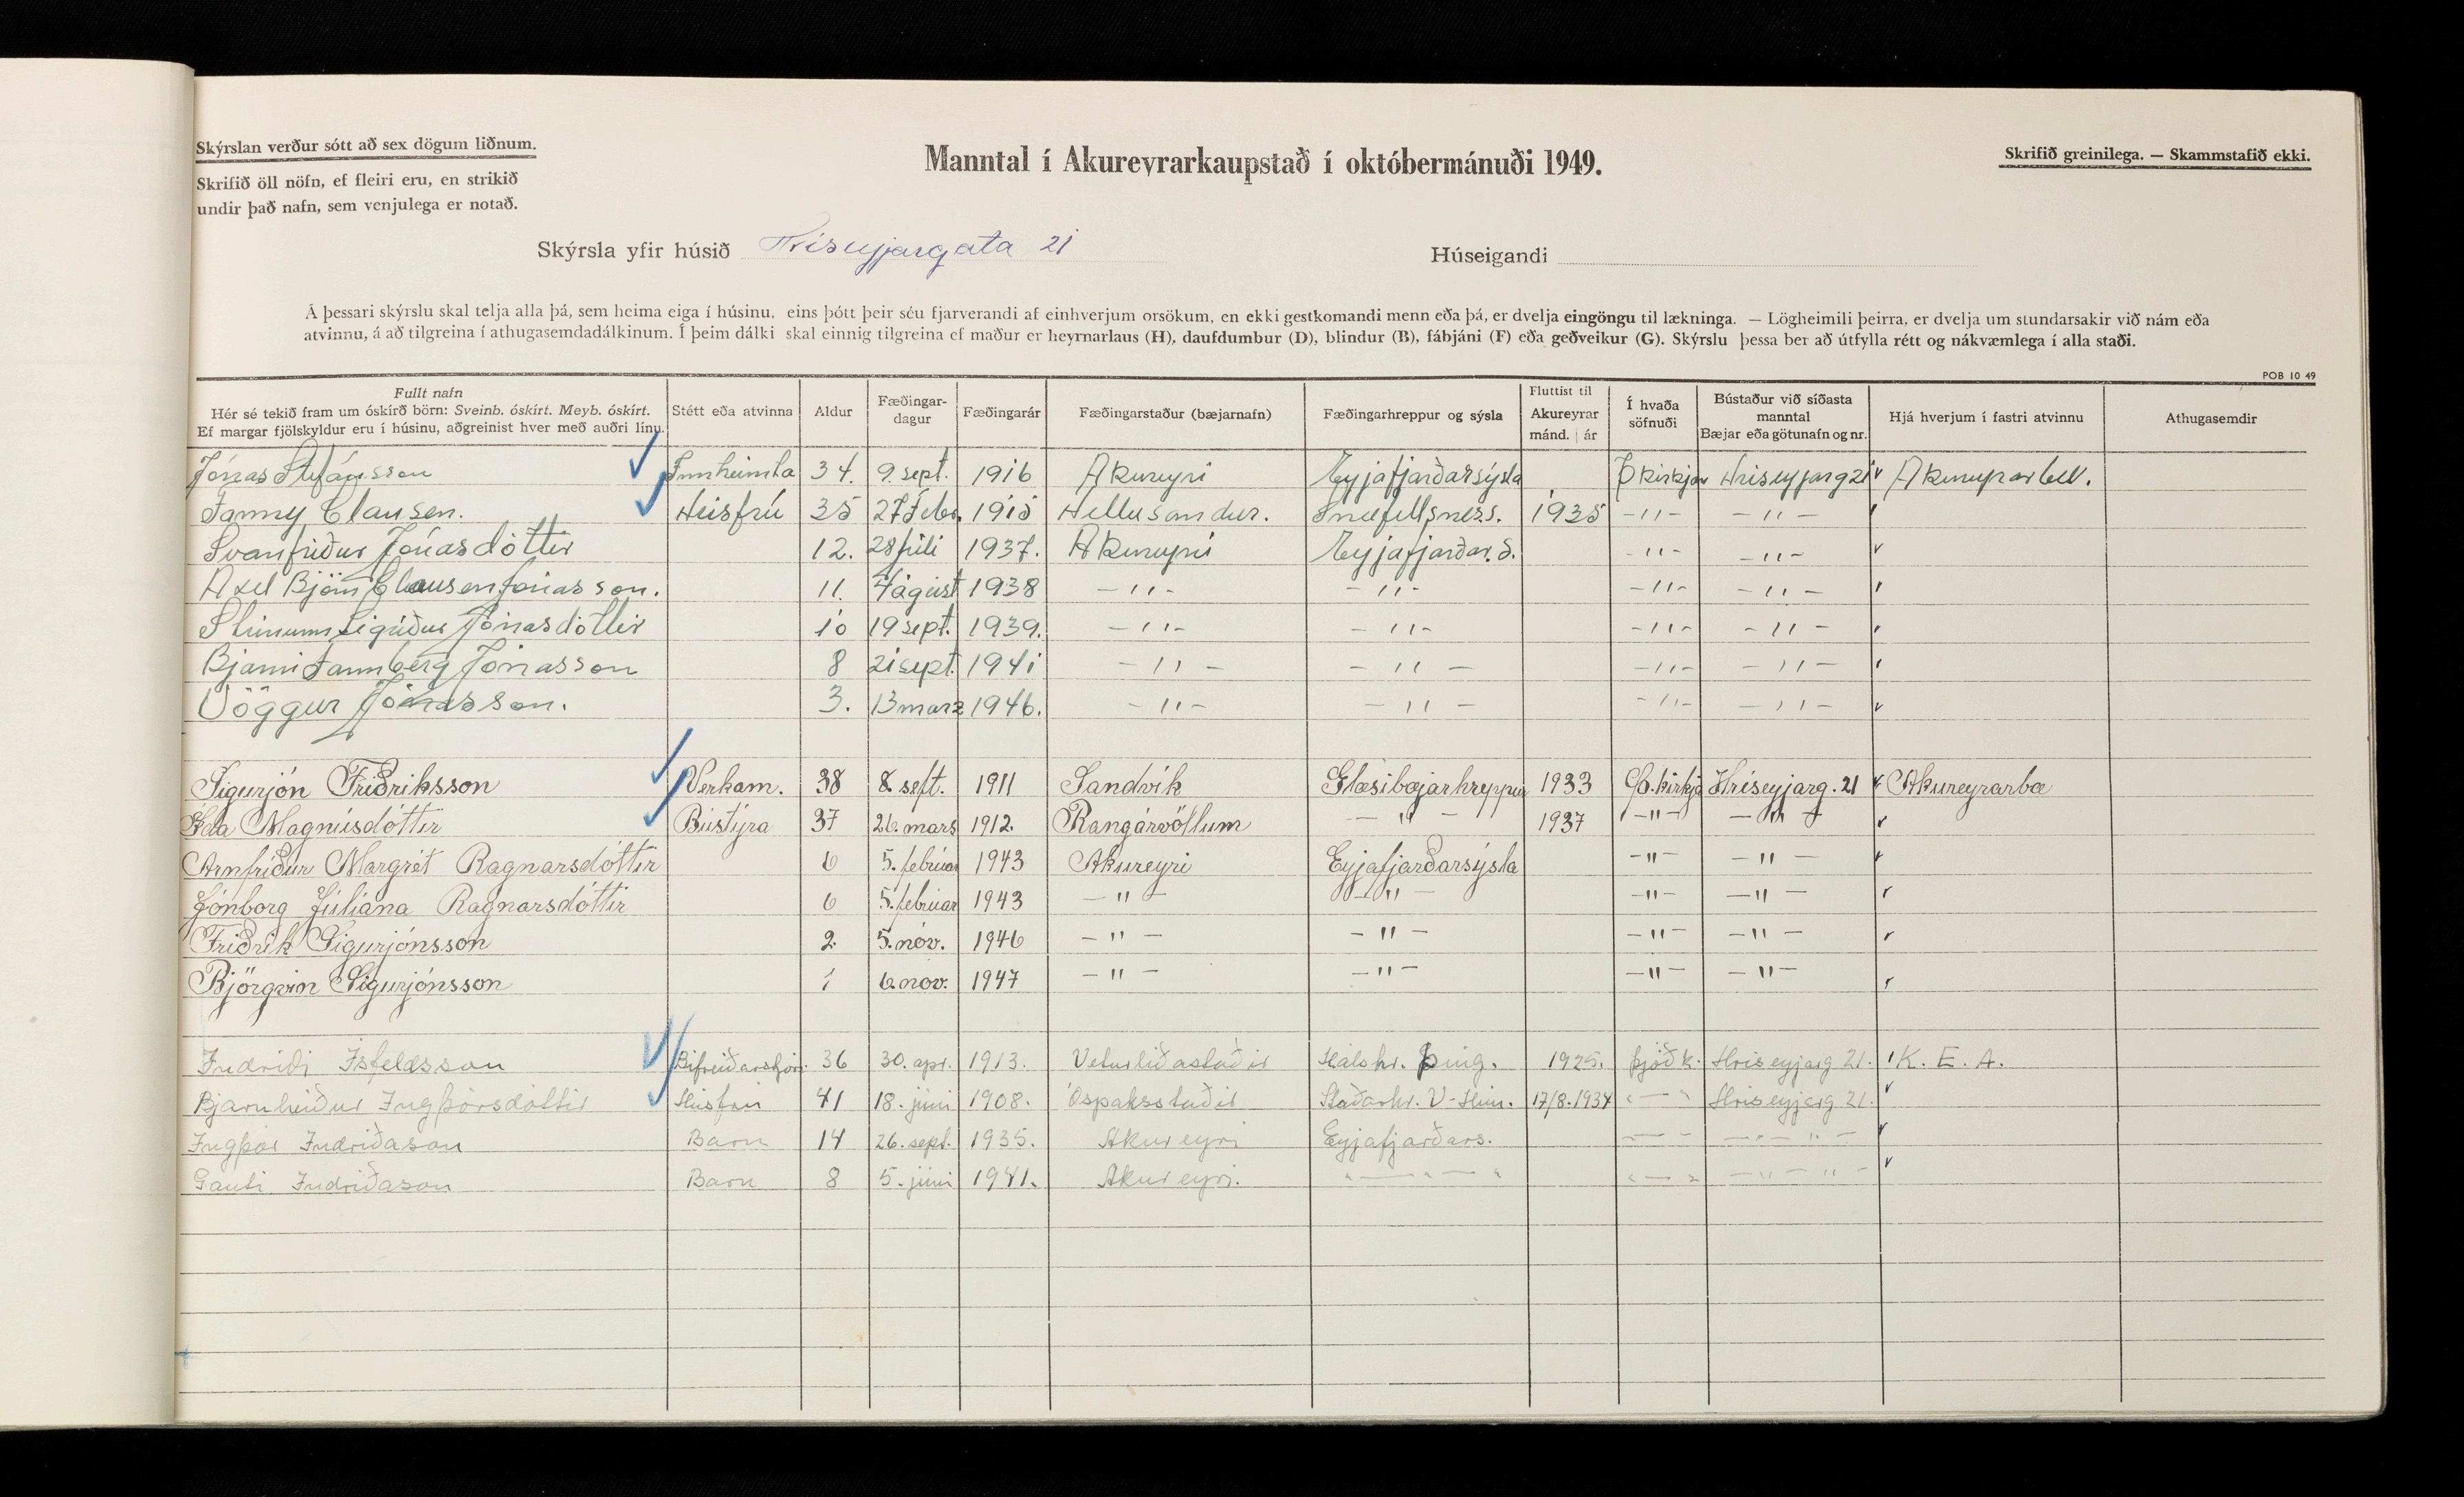 Skýrslan verður sótt að sex dögum liðnum.
Skrifið öll nöfn, ef fleiri eru, en strikið
undir það nafn, sem venjulega er notað.
Manntal í Akureyrarkaupstað í októbermánuði 1949.
Skrifið greinilega. — Skammstafið ekki.
Skýrsla yfir húsið Hríseyjargata 21 Húseigandi
Á þessari skýrslu skal telja alla þá, sem heima eiga í húsinu, eins þótt þeir séu fjarverandi af einhverjum orsökum, en ekki gestkomandi menn eða þá, er dvelja eingöngu til lækninga. — Lögheimili þeirra, er dvelja um stundarsakir við nám eða
atvinnu, á að tilgreina í athugasemdadálkinum. Í þeim dálki skal einnig tilgreina ef maður er heyrnarlaus (H), daufdumbur (D), blindur (B), fábjáni (F) eða geðveikur (G). Skýrslu þessa ber að útfylla rétt og nákvæmlega í alla staði.
POB 10 49
Fullt nafn
Hér sé tekið fram um óskírð börn: Sveinb. óskírt. Meyb. óskírt.
Ef margar fjölskyldur eru í húsinu, aðgreinist hver með auðri línu.
Stétt eða atvinna
Aldur
Fæðingar-
dagur
Fæðingarár
Fæðingarstaður (bæjarnafn)
Fæðingarhreppur og sýsla
Fluttist til
Akureyrar
mánd. | ár
Í hvaða
söfnuði
Bústaður við síðasta
manntal
Bæjar eða götunafn og nr.
Hjá hverjum í fastri atvinnu
Athugasemdir
Jónas Stefánsson Innheimta 34. 9. sept. 1916 Akureyri Eyjafjarðarsýsla Þkirkjan Hriseyjarg 21 Akureyrarbæ.
Fanny Clausen. Húsfrú 35 27 febr. 1915 Hellusandur. Snæfellsness. 1935 -"- -"-
Svanfríður Jónasdóttir 12. 28 júlí 1937. Akureyri Eyjafjarðar.s. -"- -"-
Axel Björn Clausen Jónasson. 11. 4 ágúst 1938 -"- -"- -"- -"-
Steinunn Sigríður Jónasdóttir 10 19 sept. 1939. -"- -"- -"- -"-
Bjarni Fannberg Jónasson 8 21 sept. 1941 -"- -"- -"- -"-
Vöggur Jónasson. 3. 13 marz 1946. -"- -"- -"- -"-
Sigurjón Friðriksson Verkam. 38 8. sept. 1911 Sandvík Glæsibæjarhreppur 1933 Þ.kirkja Hríseyjarg. 21 Akureyrarbæ
Magnúsdóttir Bústýra 37 26. mars 1912. Rangárvöllum -"- 1937 -"- -"-
Arnfríður Margrét Ragnarsdóttir 6 5. febrúar 1943 Akureyri Eyjafjarðarsýsla -"- -"-
Jónborg Júlíana Ragnarsdóttir 6 5. febrúar 1943 -"- -"- -"- -"-
Friðrik Sigurjónsson 2. 5. nóv. 1946 -"- -"- -"- -"-
Björgvin Sigurjónsson 1 6. nóv. 1947 -"- -"- -"- -"-
Indriði Ísfeldsson Bifreiðarstjóri 36 30. apr. 1913. Veturliðastaðir Hálshr. Þing. 1925. Þjóðk. Hriseyjarg 21. K. E. A.
Bjarnheiður Ingþórsdóttir Húsfrú 41 18. júní 1908. Óspaksstaðir Staðarhr. V-Hún. 17/8.1934 "—" Hriseyjarg 21.
Ingþór Indriðason Barn 14 26. sept. 1935. Akureyri Eyjafjarðars. — — — — " —
Gauti Indriðason Barn 8 5. júní 1941. Akureyri. " — " — " " — " — " — " —